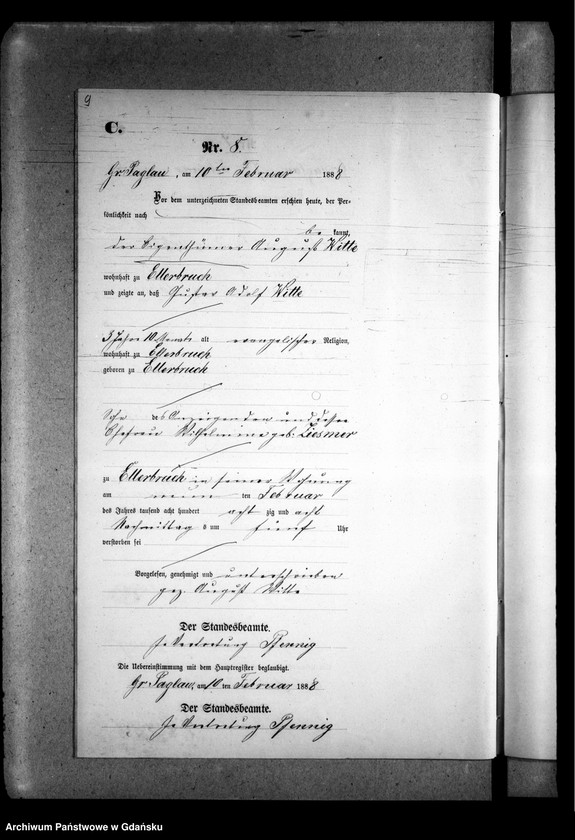 9
C.
Nr. 8.
Gr. Paglau, am 10ten Februar 1888
Vor dem unterzeichneten Standesbeamten erschien heute, der Per-
sönlichkeit nach
be kannt,
der Eigenthümer August Witte
wohnhaft zu Ellerbruch
und zeigte an, daß Gustav Adolf Witte
3 Jahre 10 Monate alt evangelischer Religion,
wohnhaft zu Ellerbruch
geboren zu Ellerbruch
Sohn des Anzeigenden und dessen
Ehefrau Wilhelmine geb. Ziesmer
zu Ellerbruch in seiner Wohnung
am neun ten Februar
des Jahres tausend acht hundert acht zig und acht
Nachmittag s um fünf Uhr
verstorben sei
Vorgelesen, genehmigt und unterschrieben
gez. August Witte
Der Standesbeamte.
In Vertretung Pfennig
Die Uebereinstimmung mit dem Hauptregister beglaubigt.
Gr. Paglau, am 10 ten Februar 1888
Der Standesbeamte.
In Vertretung Pfennig
Archiwum Państwowe w Gdańsku